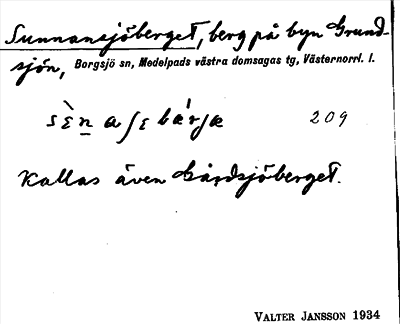 Sunnansjöberget, berg på byn Grund-
sjön, Borgsjö sn, Medelpads västra domsagas tg, Västernorrl. l.
209
Kallas även Gårdsjöberget.
VALTER JANSSON 1934